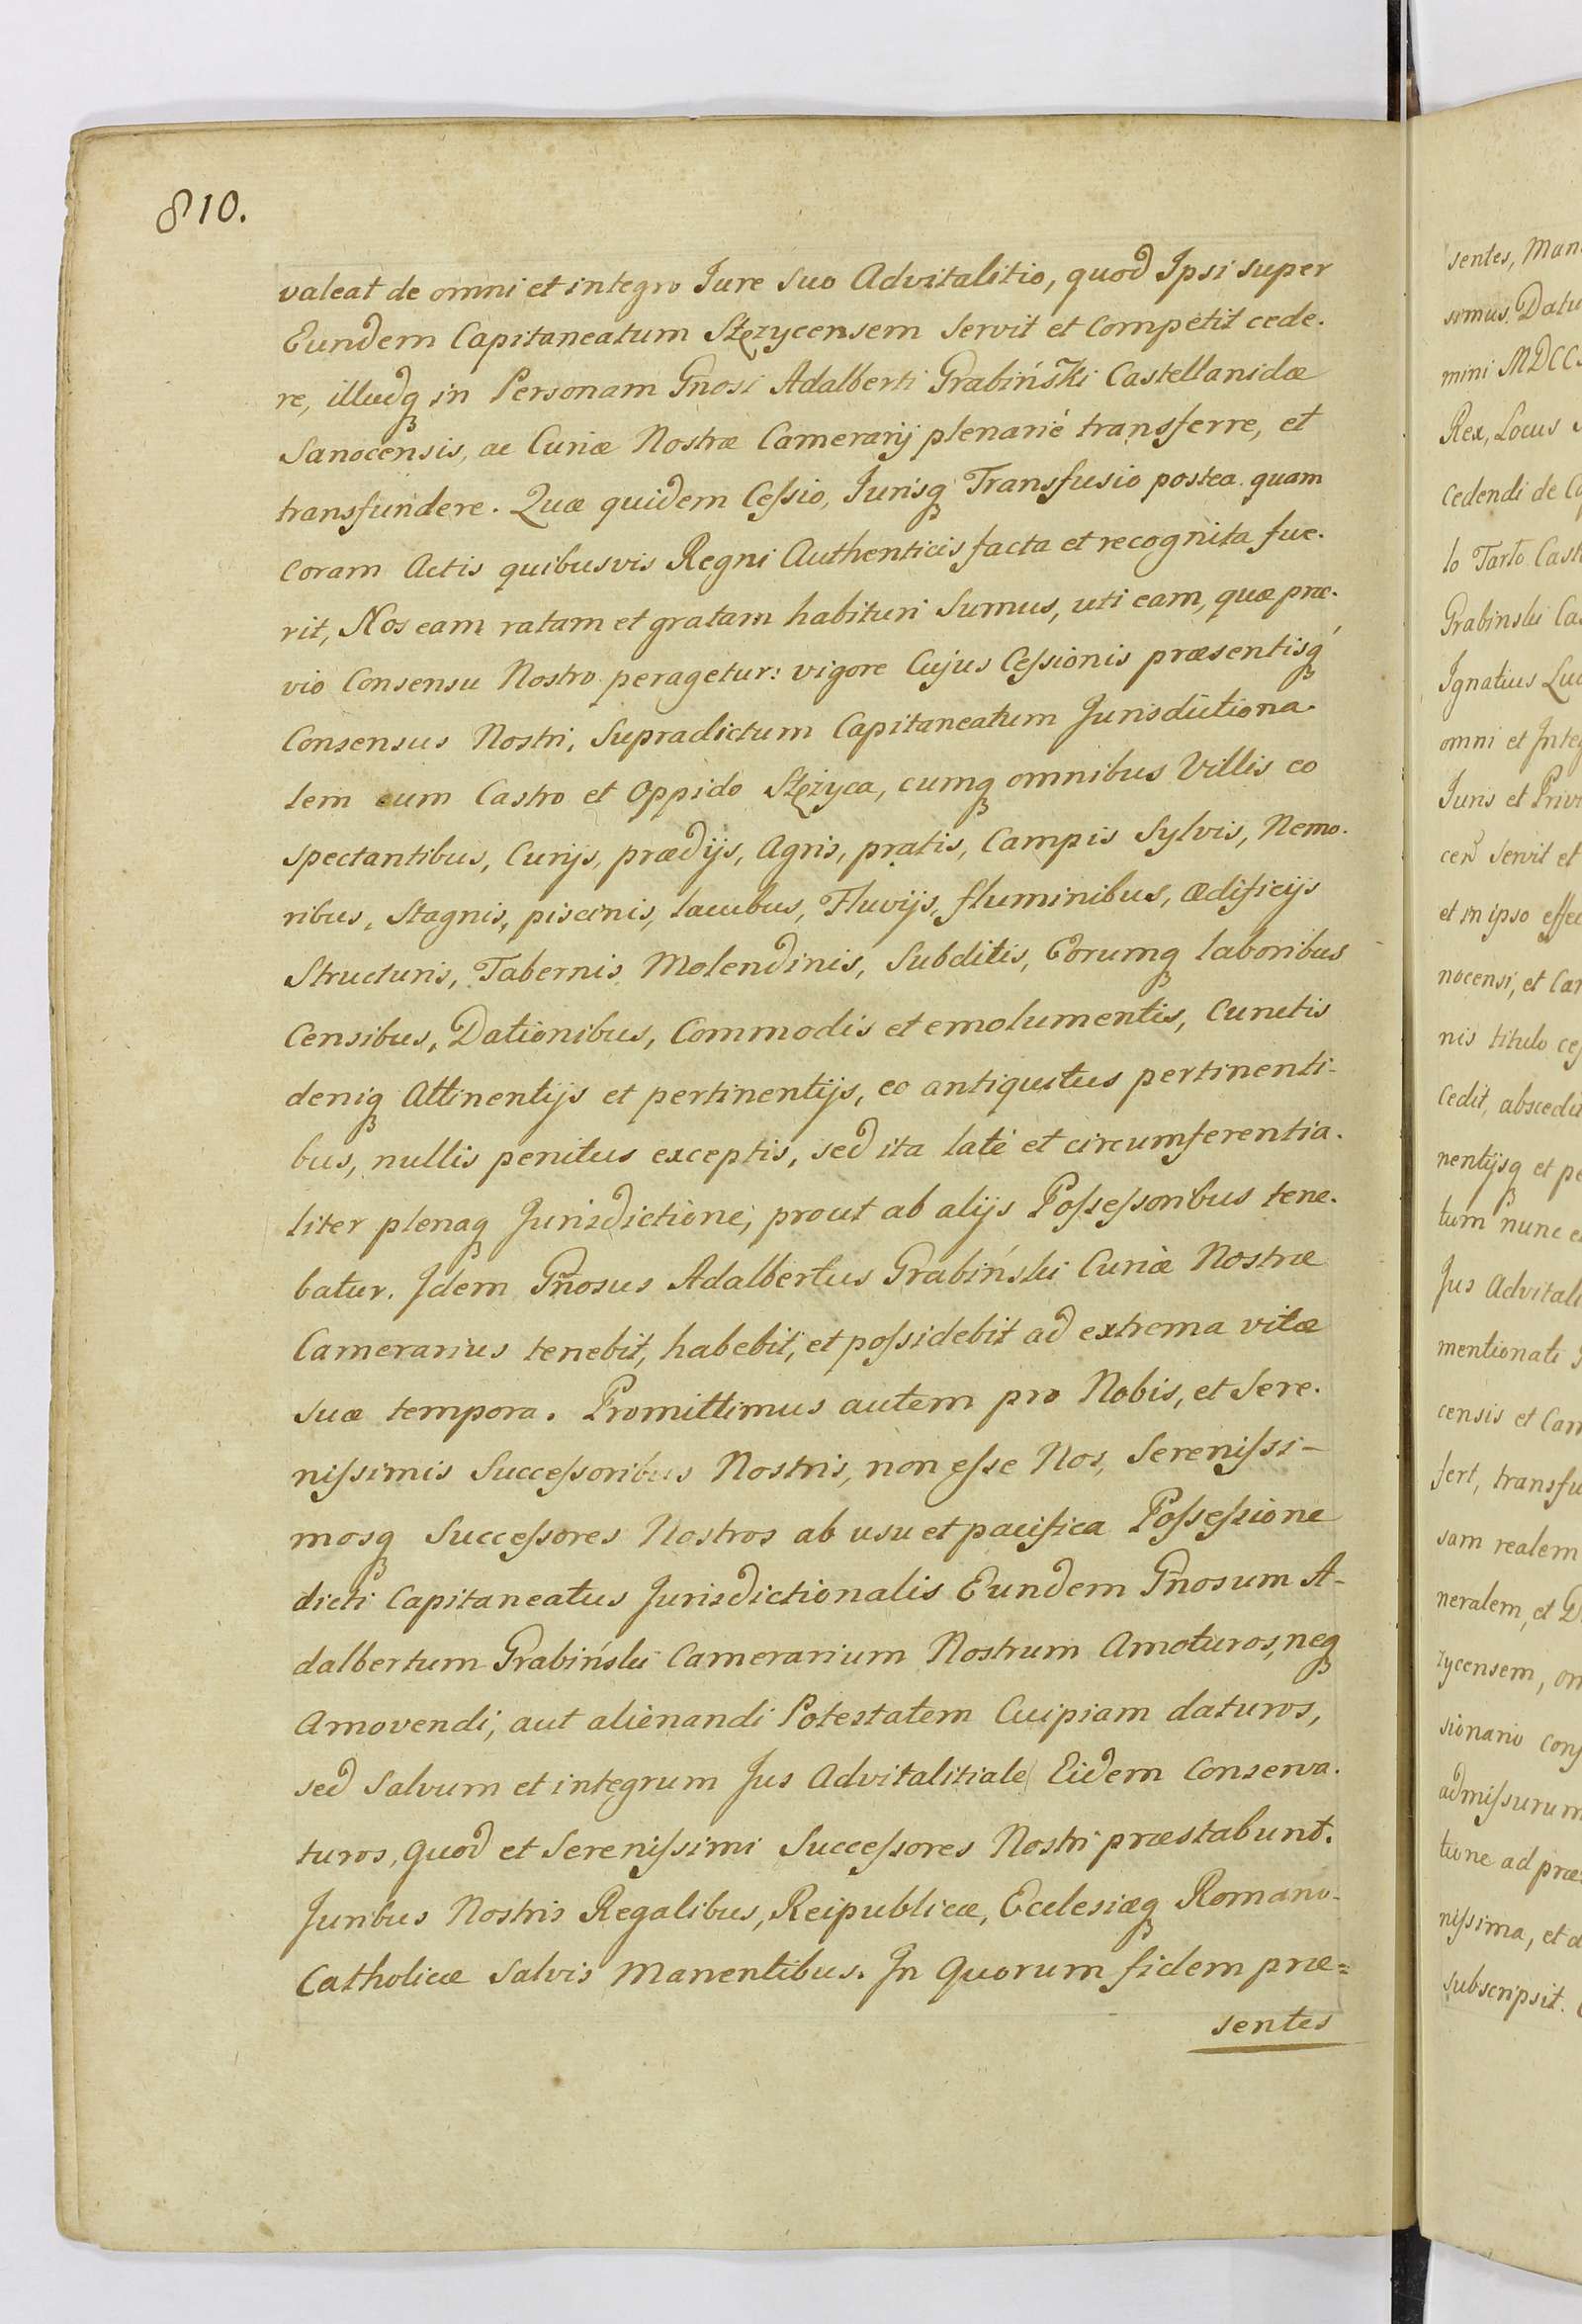 810.
valeat de omni et integro Jure Suo Advitalitio, quod Ipsi super
Eundem Capitaneatum Stęzycensem Servit et Competit cede.
re, illudq in Personam Gnosi Adalberti Grabiński Castellanidæ
Sanocensis, ac Curiæ Nostræ Camerarij plenarié transferre, et
transfundere. Quæ quidem Ceſsio, Jurisq Transfusio postea quam
Coram Actis quibusvis Regni Authenticis facta et recognita fue.
rit, Nos eam ratam et gratam habituri Sumus, uti eam, quæ præ.
vio Consensu Nostro peragetur: vigore Cujus Ceſsionis præsentisq
Consensus Nostri, Supradictum Capitaneatum Jurisdictiona.
lem cum Castro et Oppido Stęzyca, cumq omnibus Villis eo
spectantibus, Curijs, prædijs, Agris, pratis, Campis Sylvis, Nemo.
ribus, Stagnis, piscinis, lacubus, Fluvijs, fluminibus, ædificijs
Structuris, Tabernis Molendinis, Subditis, Eorumq laboribus
Censibus, Dationibus, Commodis et emolumentis, Cunctis
deniq Attinentijs et pertinentijs, eo antiquitus pertinenti-
bus, nullis penitus exceptis, sed ita laté et circumferentia.
liter plenaq Jurisdictione, prout ab alijs Poſseſsoribus tene.
batur. Idem Gnosus Adalbertus Grabiński Curiæ Nostræ
Camerarius tenebit, habebit, et poſsidebit ad extrema vitæ
suæ tempora. Promittimus autem pro Nobis, et Sere.
niſsimis Succeſsoribus Nostris, non eſse Nos, Sereniſsi-
mosq Succeſsores Nostros ab usu et pacifica Poſseſsione
dicti Capitaneatus Jurisdictionalis Eundem Gnosum A-
dalbertum Grabiński Camerarium Nostrum Amoturos, neq
Amovendi, aut alienandi Potestatem Cuipiam daturos,
sed Salvum et integrum Jus Advitalitiale Eidem Conserva.
turos, Quod et Sereniſsimi Succeſsores Nostri præstabunt.
Juribus Nostris Regalibus, Reipublicæ, Ecclesiæq Romano-
Catholicæ Salvis Manentibus. In Quorum fidem præ=
sentes
sentes, Man
simus. Datu
mini MDCC
Rex, Locus
Cedendi de
lo Tarło Cast
Grabinski Ca
Ignatius
omni et Inte
Juris et Privi
Servit et
et in ipso effec
nocensi, et Ca
nis titulo ceſ
Cedit, abscedit
nentijsq et pe
tum nunc e
Jus Advitali
mentionati
censis et Cam
fert, transfu
sam realem
neralem, et D
zycensem, om
sionario
admiſsurum
tione ad præ
niſsima, et
subscripsit.